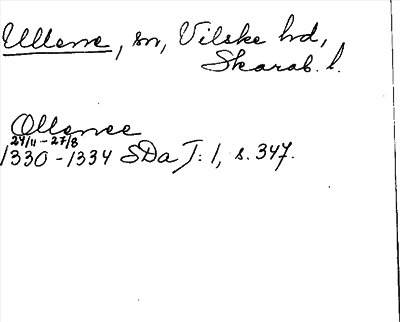 Ullene, sn, Vilske hd,
Skarab. l.
Ollenee
24/11 - 27/8
1330 - 1334 SDa I: 1, s. 347.